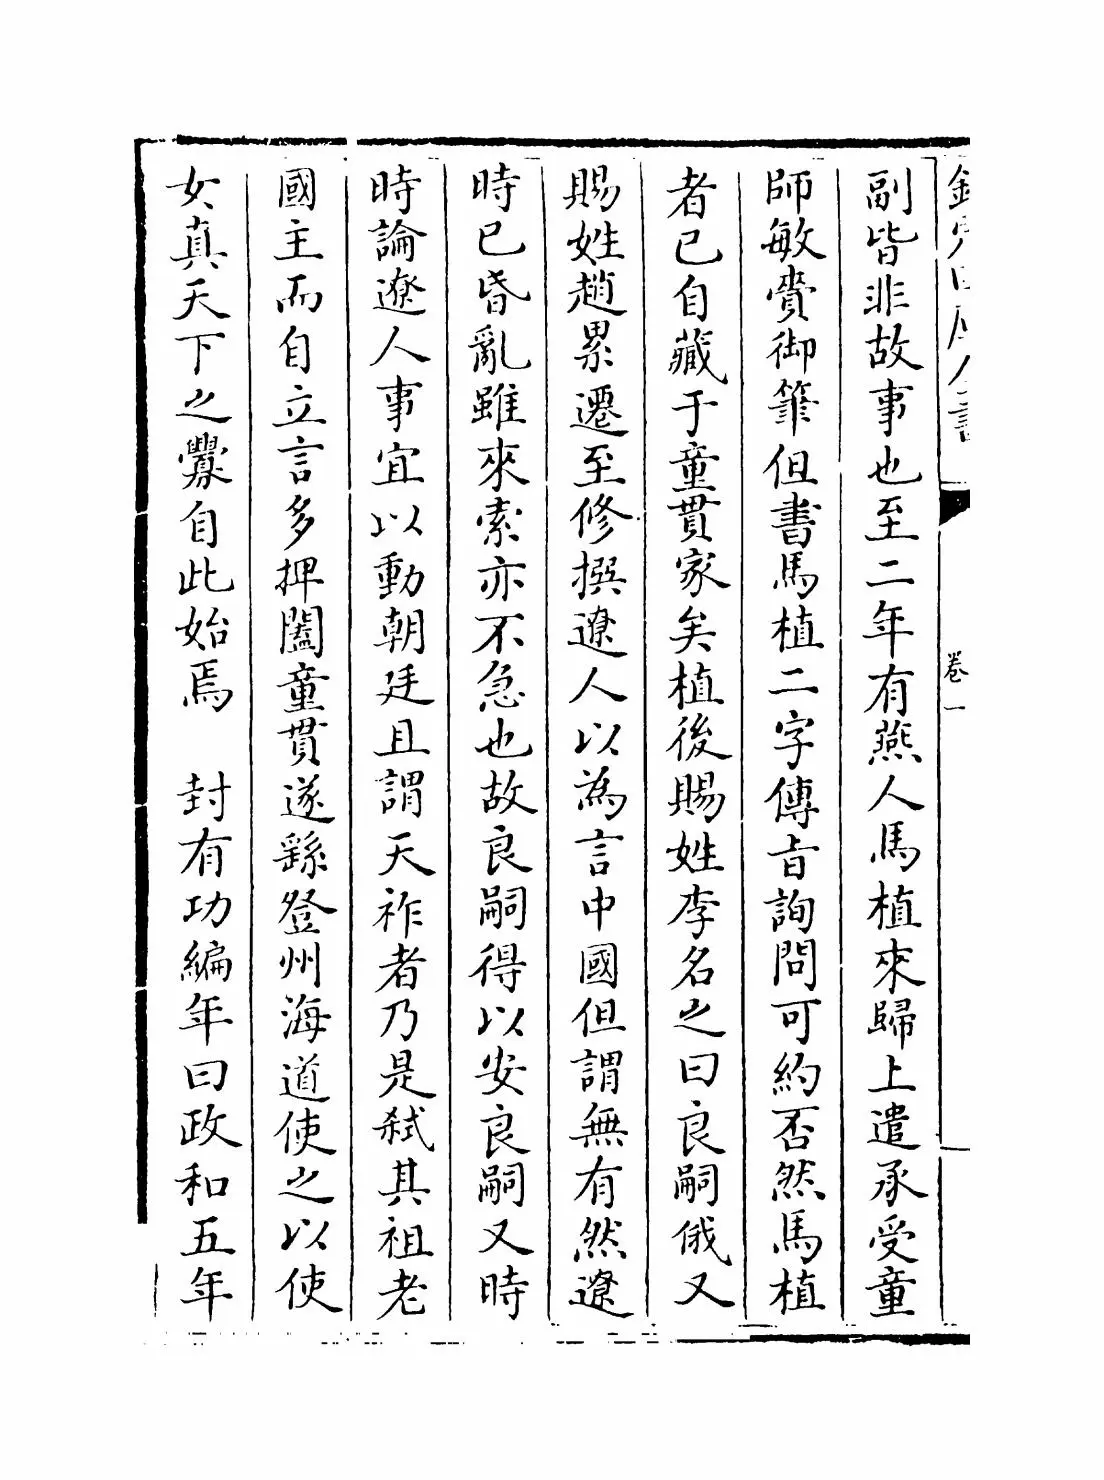 欽定四庫全書
卷一
副皆非故事也至二年有燕人馬植來歸上遣承受童
師敏賫御筆但書馬植二字傳旨詢問可約否然馬植
者已自藏于童貫家矣植後賜姓李名之曰良嗣俄又
賜姓趙累遷至修撰遼人以為言中國但謂無有然遼
時已昏亂雖來索亦不急也故良嗣得以安良嗣又時
時論遼人事宜以動朝廷且謂天祚者乃是弑其祖老
國主而自立言多押闔童貫遂繇登州海道使之以使
女真天下之釁自此始焉 封有功編年曰政和五年